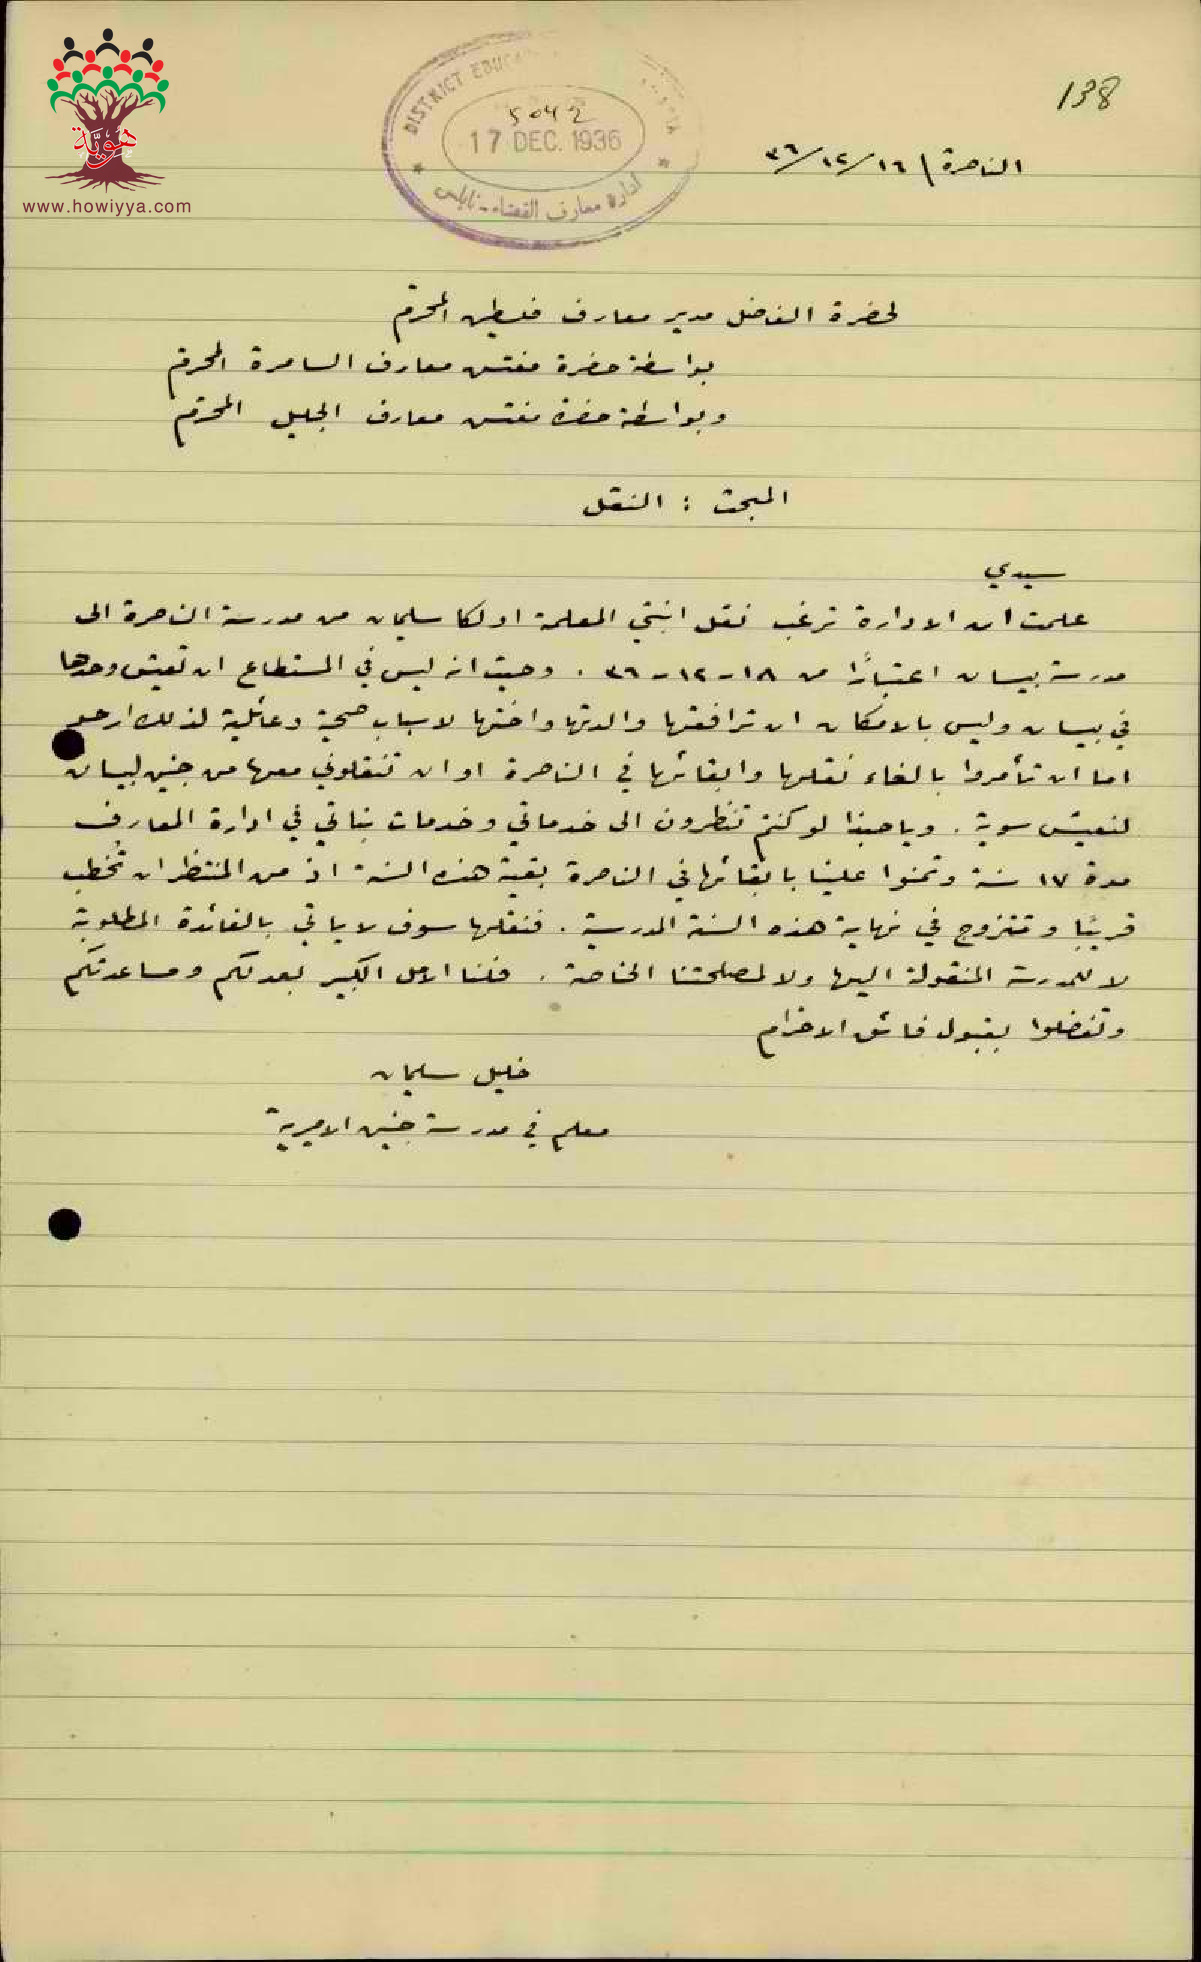 138
هوية
www.howiyya.com
DISTRICT EDUCA
5042
17 DEC. 1936
ادارة معارف القضاء - نابلس
الناصرة \ ١٦/١٢/٣٦
لحضرة الفاضل مدير معارف فلسطين المحترم
بواسطة حضرة مفتش معارف السامرة المحترم
وبواسطة حضرة مفتش معارف الجليل المحترم
المبحث : النقل
سيدي
علمت ان الادارة ترغب نقل ابنتي المعلمة اولكا سليمان من مدرسة الناصرة الى
مدرسة بيسان اعتبارًا من ١٨-١٢-٣٦ . وحيث انه ليس في المستطاع ان تعيش وحدها
في بيسان وليس بالامكان ان ترافقها والدتها واختها لاسباب صحية وعائلية لذلك ارجو
اما ان تأمروا بالغاء نقلها وابقائها في الناصرة او ان تنقلوني معها من جنين لبيسان
لنعيش سوية . ويا حبذا لو كنتم تنظرون الى خدماتي وخدمات بناتي في ادارة المعارف
مدة ١٧ سنة وتمنوا علينا بابقائها في الناصرة بقية هذه السنة اذ من المنتظر ان تُخطب
قريبًا وتتزوج في نهاية هذه السنة المدرسية . فنقلها سوف لا ياتي بالفائدة المطلوبة
لا للمدرسة المنقولة اليها ولا لمصلحتنا الخاصة . فلنا الامل الكبير بعدلكم ومساعدتكم
وتفضلوا بقبول فائق الاحترام
خليل سليمان
معلم في مدرسة جنين الاميرية